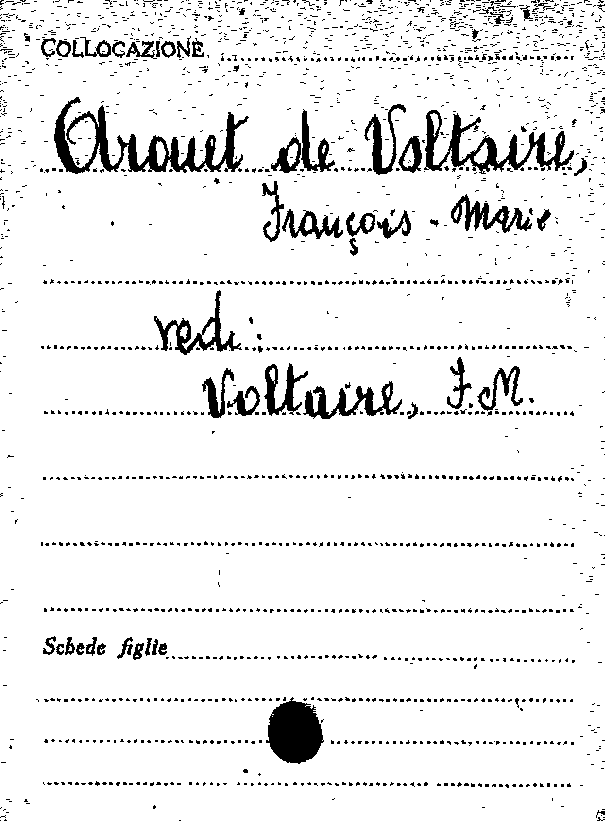 COLLOCAZIONE
Arouet de Voltaire,
François-Marie
vedi:
Voltaire, F.M.
Schede figlie